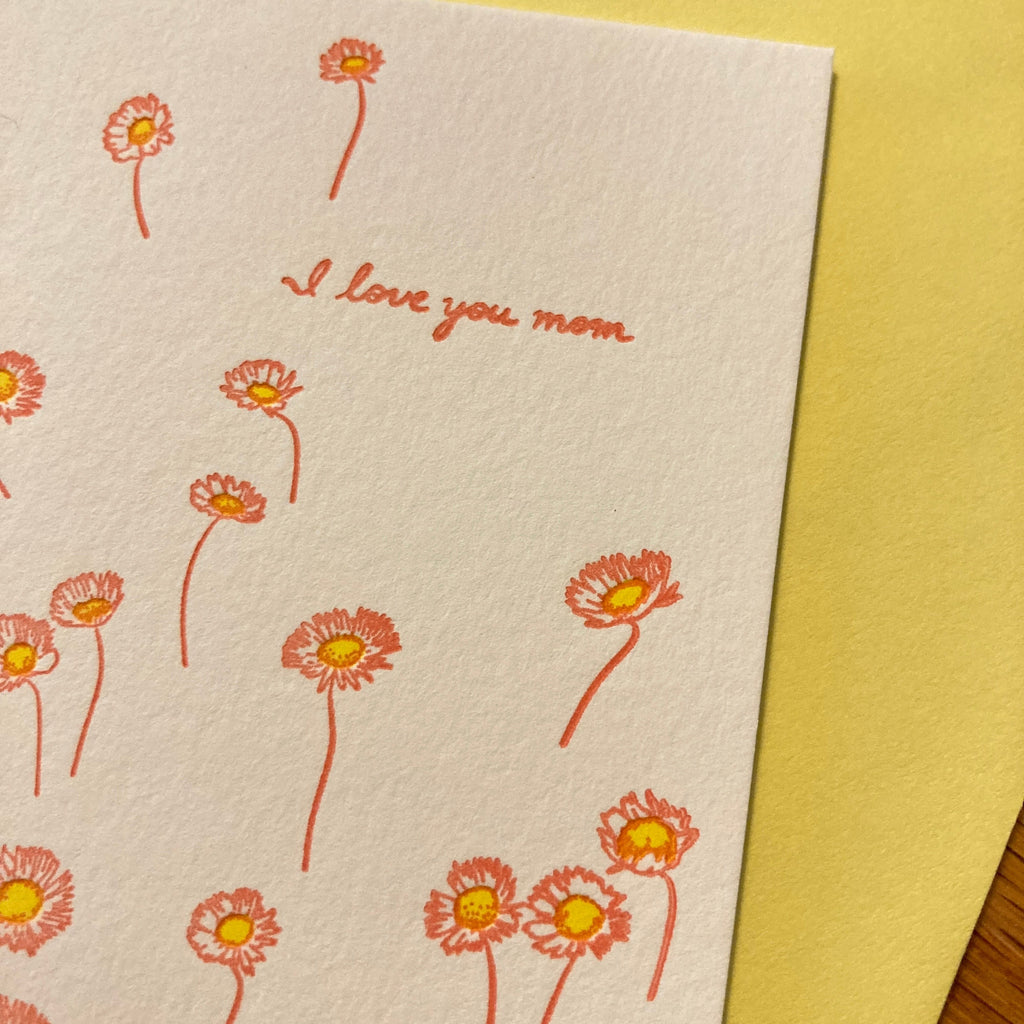 I love you mom